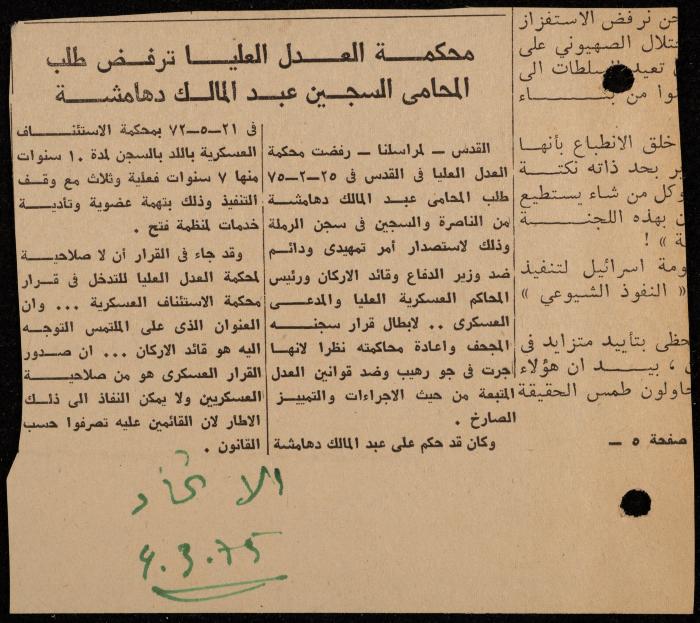 محكمة العدل العليا ترفض طلب
المحامى السجين عبد المالك دهامشة
القدس - لمراسلنا - رفضت محكمة
العدل العليا فى القدس فى ٢٥-٢-٧٥
طلب المحامى عبد المالك دهامشة
من الناصرة والسجين فى سجن الرملة
وذلك لاستصدار أمر تمهيدى ودائم
ضد وزير الدفاع وقائد الاركان ورئيس
المحاكم العسكرية العليا والمدعى
العسكرى .. لابطال قرار سجنه
المجحف واعادة محاكمته نظرا لانها
جرت فى جو رهيب وضد قوانين العدل
المتبعة من حيث الاجراءات والتمييز
الصارخ .
وكان قد حكم على عبد المالك دهامشة
فى ٢١-٥-٧٢ بمحكمة الاستئناف
العسكرية باللد بالسجن لمدة ١٠ سنوات
منها ٧ سنوات فعلية وثلاث مع وقف
التنفيذ وذلك بتهمة عضوية وتأدية
خدمات لمنظمة فتح .
وقد جاء فى القرار أن لا صلاحية
لمحكمة العدل العليا للتدخل فى قرار
محكمة الاستئناف العسكرية ... وان
العنوان الذى على الملتمس التوجه
اليه هو قائد الاركان ... ان صدور
القرار العسكرى هو من صلاحية
العسكريين ولا يمكن النفاذ الى ذلك
الاطار لان القائمين عليه تصرفوا حسب
القانون .
نرفض الاستفزاز
الصهيونى على
تعيد السلطات الى
من
خلق الانطباع بأنها
بحد ذاته نكتة
وكل من شاء يستطيع
بهذه اللجنة
» !
اسرائيل لتنفيذ
« النفوذ الشيوعي »
بتأييد متزايد فى
، بيد ان هؤلاء
طمس الحقيقة
صفحة ٥ -
الاتحاد
4.3.75